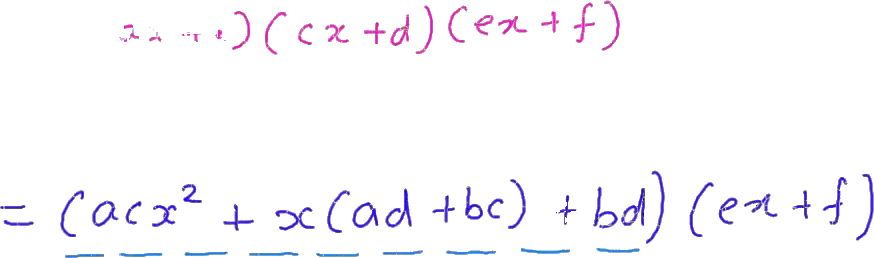 )(cx+d)(ex+f)
= (acx² + x(ad+bc) + bd)(ex+f)